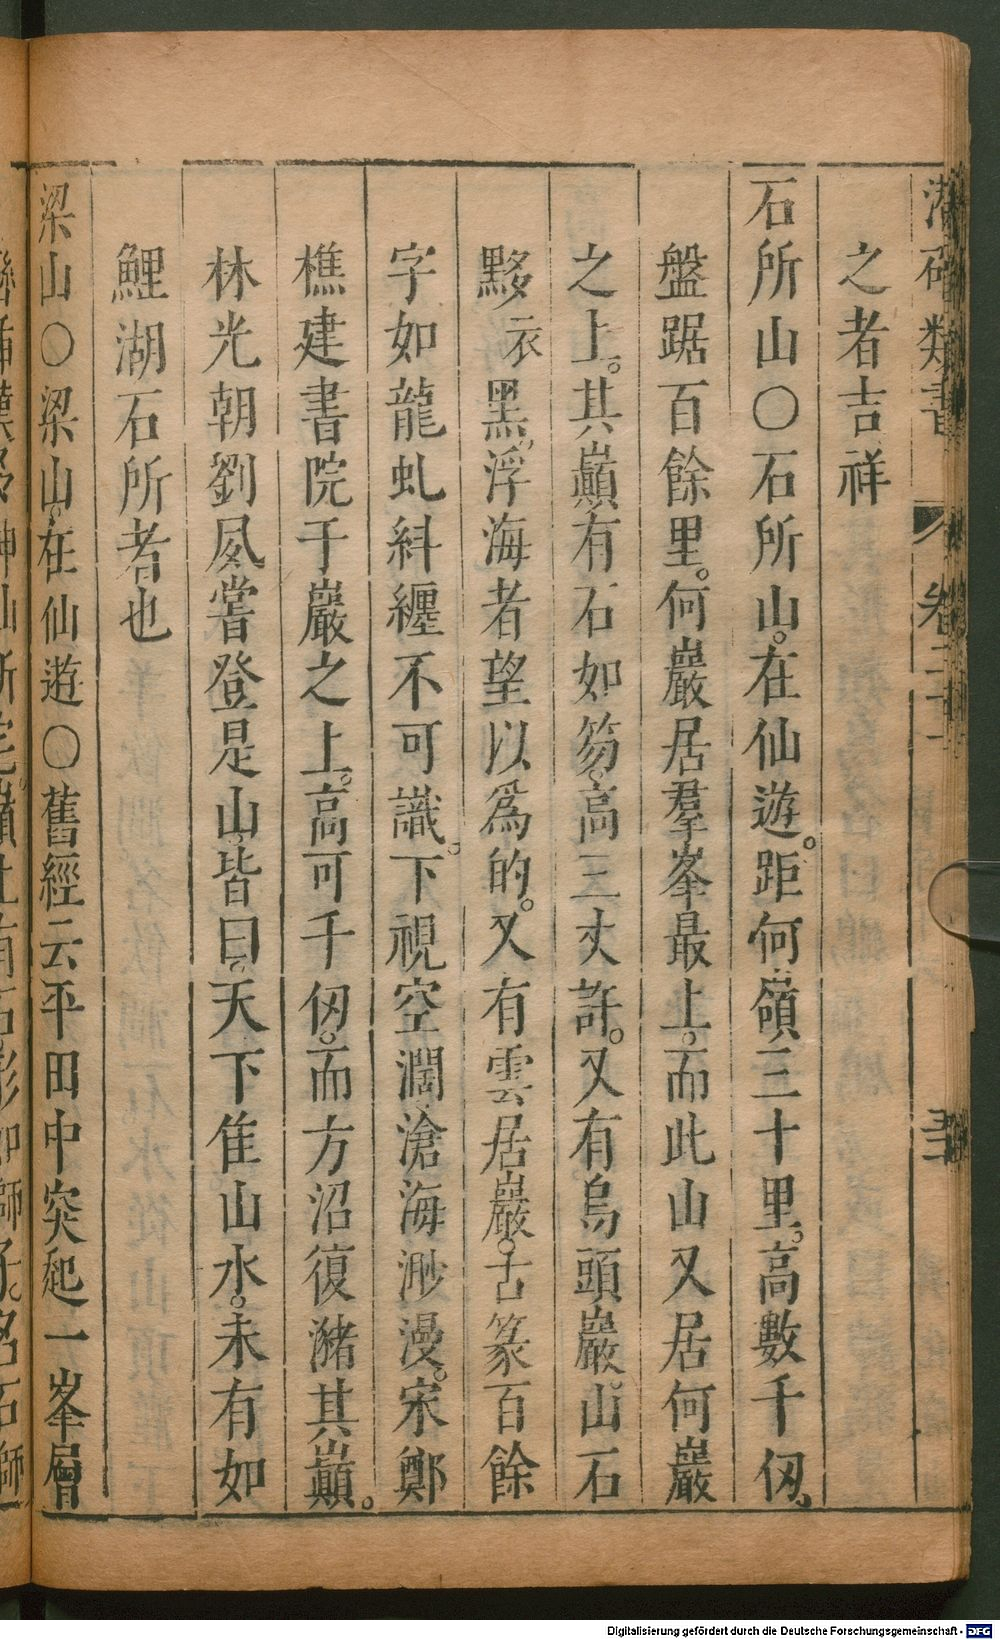 潛確類書 卷二十
之者吉祥
石所山○石所山。在仙遊。距何嶺三十里。高數千仭。
盤踞百餘里。何巖居羣峯最上。而此山又居何巖
之上。其巔有石如笏。高三丈許。又有烏頭巖。山石
黟衣黑。浮海者望以為的。又有雲居巖。古篆百餘
字如龍虬糾纏不可識。下視空濶滄海渺漫。宋鄭
樵建書院于巖之上。高可千仭。而方沼復瀦其巔。
林光朝劉夙嘗登是山。皆曰。天下隹山水。未有如
鯉湖石所者也
梁山○梁山。在仙遊○舊經云平田中突起一峯層